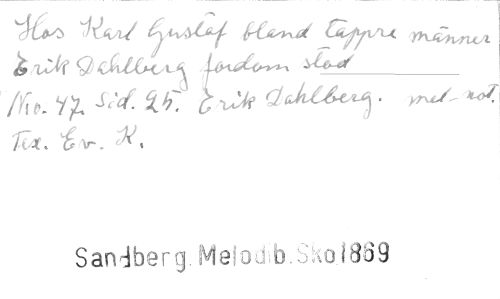 Hos Karl Gustaf bland tappre männer
Erik Dahlberg fordom stod
No. 47. Sid. 25. Erik Dahlberg. mel-not.
Tex. Ev. K.
Sandberg. Melodib. Sko 1869